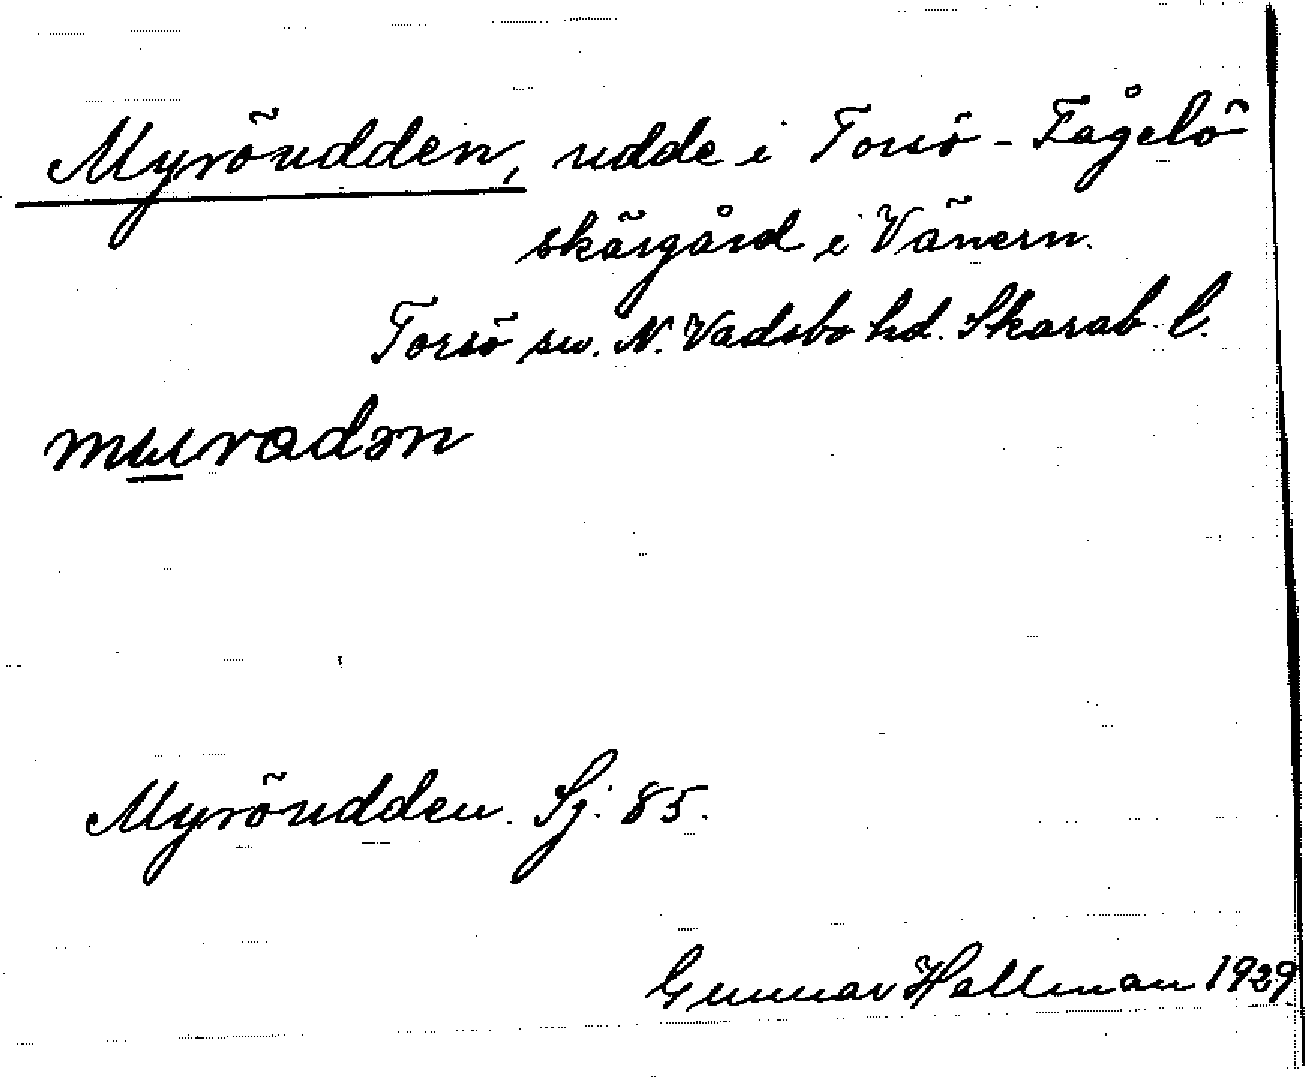 Myröudden, udde i Torsö - Fågelö
skärgård i Vänern.
Torsö sn. N. Vadsbo hd. Skarab. l.
muradən
Myröudden. Sj. 85.
Gunnar Hallman 1929